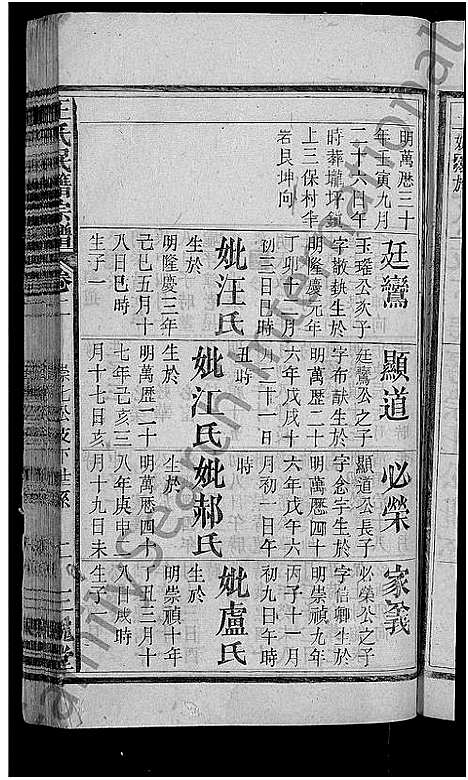 明萬厯三十
年壬寅九月
二十六日午
時葬壠坪鎮
上三保村华
岩艮坤向
廷鸞
玉瓘公次子
字敬執生於
明隆慶元年
丁卯十二月
初三日巳時
妣汪氏
生於
明隆慶三年
己巳五月十
八日巳時
生子一
顯道
廷鸞公之子
字布猷生於
明萬厯二十
六年戊戌十
月二十一日
丑時
妣江氏
生於
明萬厯二十
七年己亥三
月十七日亥
時
必榮
顯道公長子
字念宇生於
明萬厯四十
六年戊午六
月初一日午
時
妣郝氏
生於
明萬厯四十
八年庚申二
月十九日未
時
生子一
家義
必榮公之子
字信卿生於
明崇禎九年
丙子十一月
初九日午時
妣盧氏
生於
明崇禎十年
丁丑三月十
八日戌時
生子一
王氏宗譜
卷二
FamilySearch International